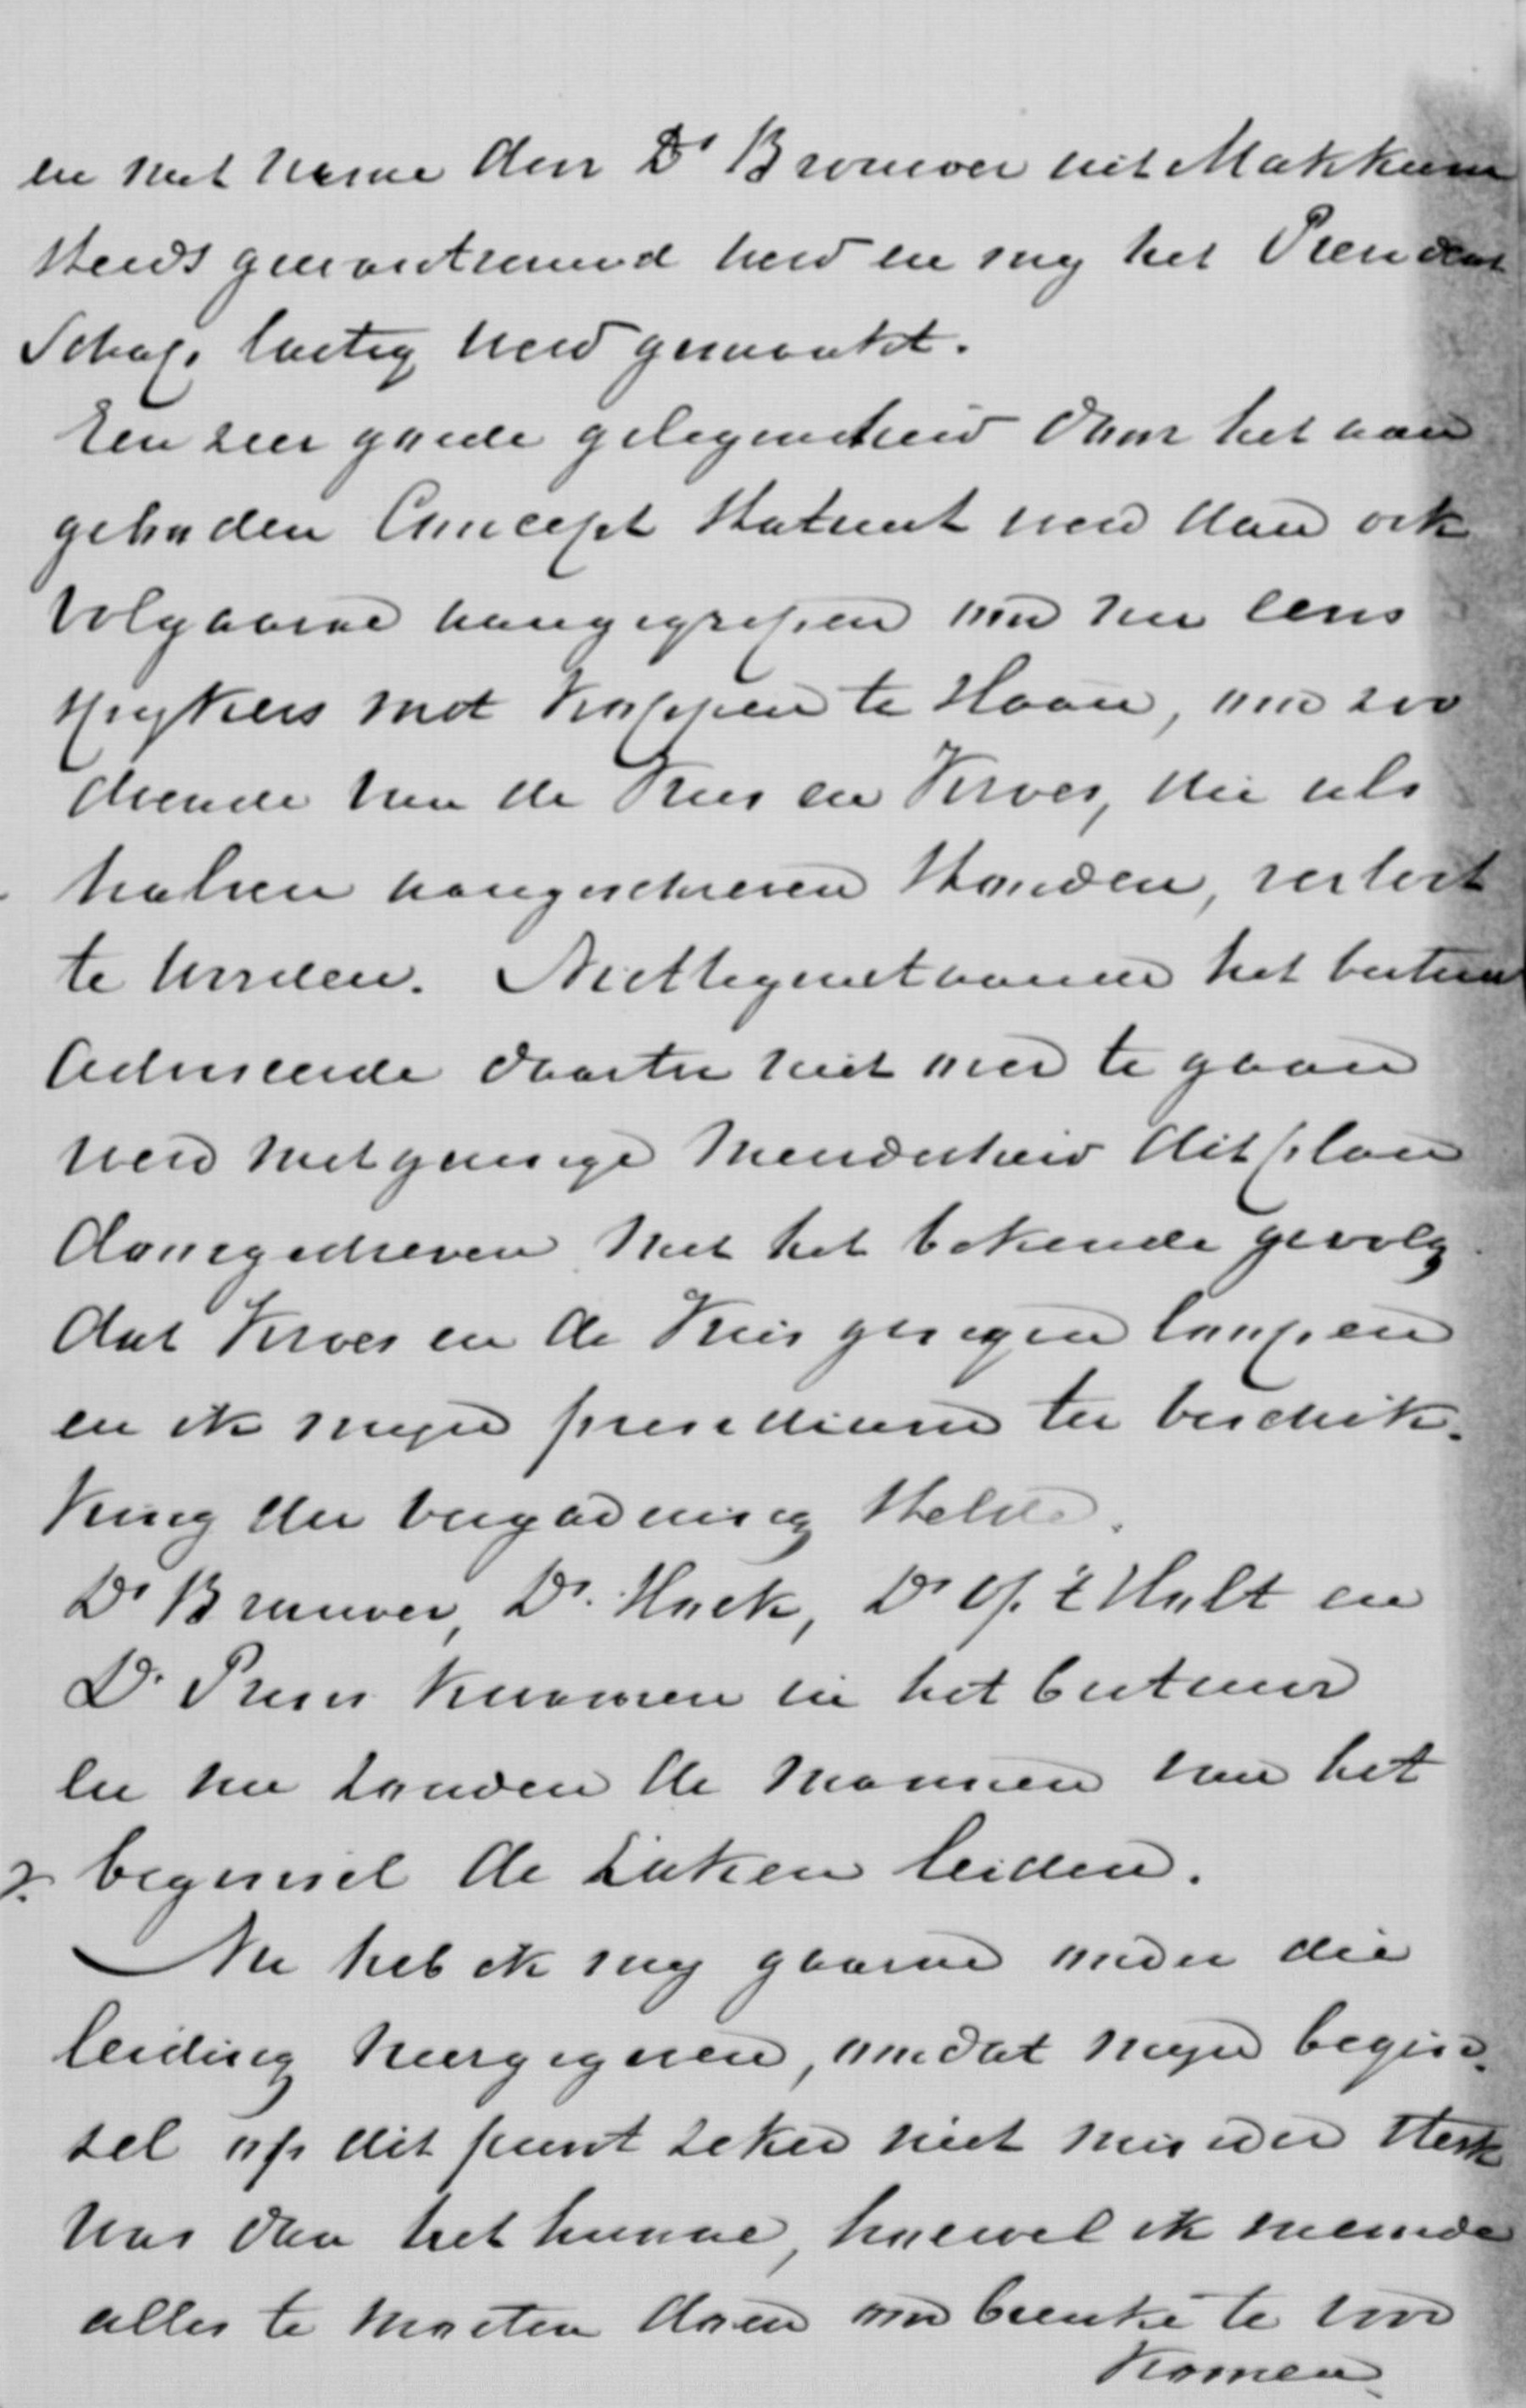 en met name den Dr Brouwer uit Makkum
steeds gewantrouwd werd en mij het President
Schap lastig werd gemaakt.
Een zeer goede gelegenheid door het aan
geboden Concept Statuut werd dan ook
volgaarne aangegrepen om nu eens
spijkers met koppen te slaan, om zoo
doende van de Vries en Kroes, die als
halven aangeschreven stonden, verlost
te worden. Niettegenstaande het bestuur
adviseerde daartoe niet over te gaan
werd met geringe meerderheid dit plan
doorgedreven met het bekende gevolg
dat Kroes en de Vries gingen loopen
en ik mijn presidium ter beschik-
king der vergadering stelde.
Dr Brouwer, Dr. Hoek, Dr Op 't Holt en
Dr. Prins kwamen in het bestuur
en nu zouden de mannen van het
beginsel de zaken leiden.
Nu heb ik mij gaarne onder die
leiding neergegeven, omdat mijn begin-
sel op dit punt zeker niet minder sterk
was dan het hunne, hoewel ik meende
alles te moeten doen om breuke te voor
komen